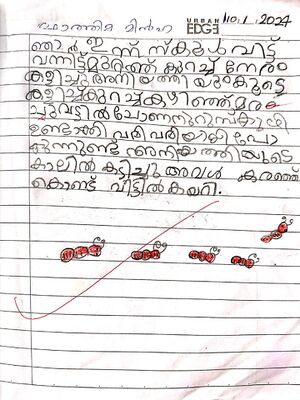 ഫാത്തിമ മിൻഹ URBAN EDGE 10.1.2024
ഞാൻ ഇന്ന് സ്കൂൾ വിട്ട്
വന്നിട്ട് മുറ്റത്ത് കുറച്ച് നേരം
കളിച്ചു അനിയത്തിയും കൂട്ടെ
കളിച്ച് കുറച്ച് കഴിഞ്ഞ് മര
ച്ചുവട്ടിൽ കുഴി
ഉണ്ടാത്തി വരി വരിയായി പോ
കുന്നുണ്ട് അനിയത്തിയുടെ
കാലിൽ കടിച്ചു അവൾ കരഞ്ഞ
കൊണ്ട് വീട്ടിൽ കയറി.